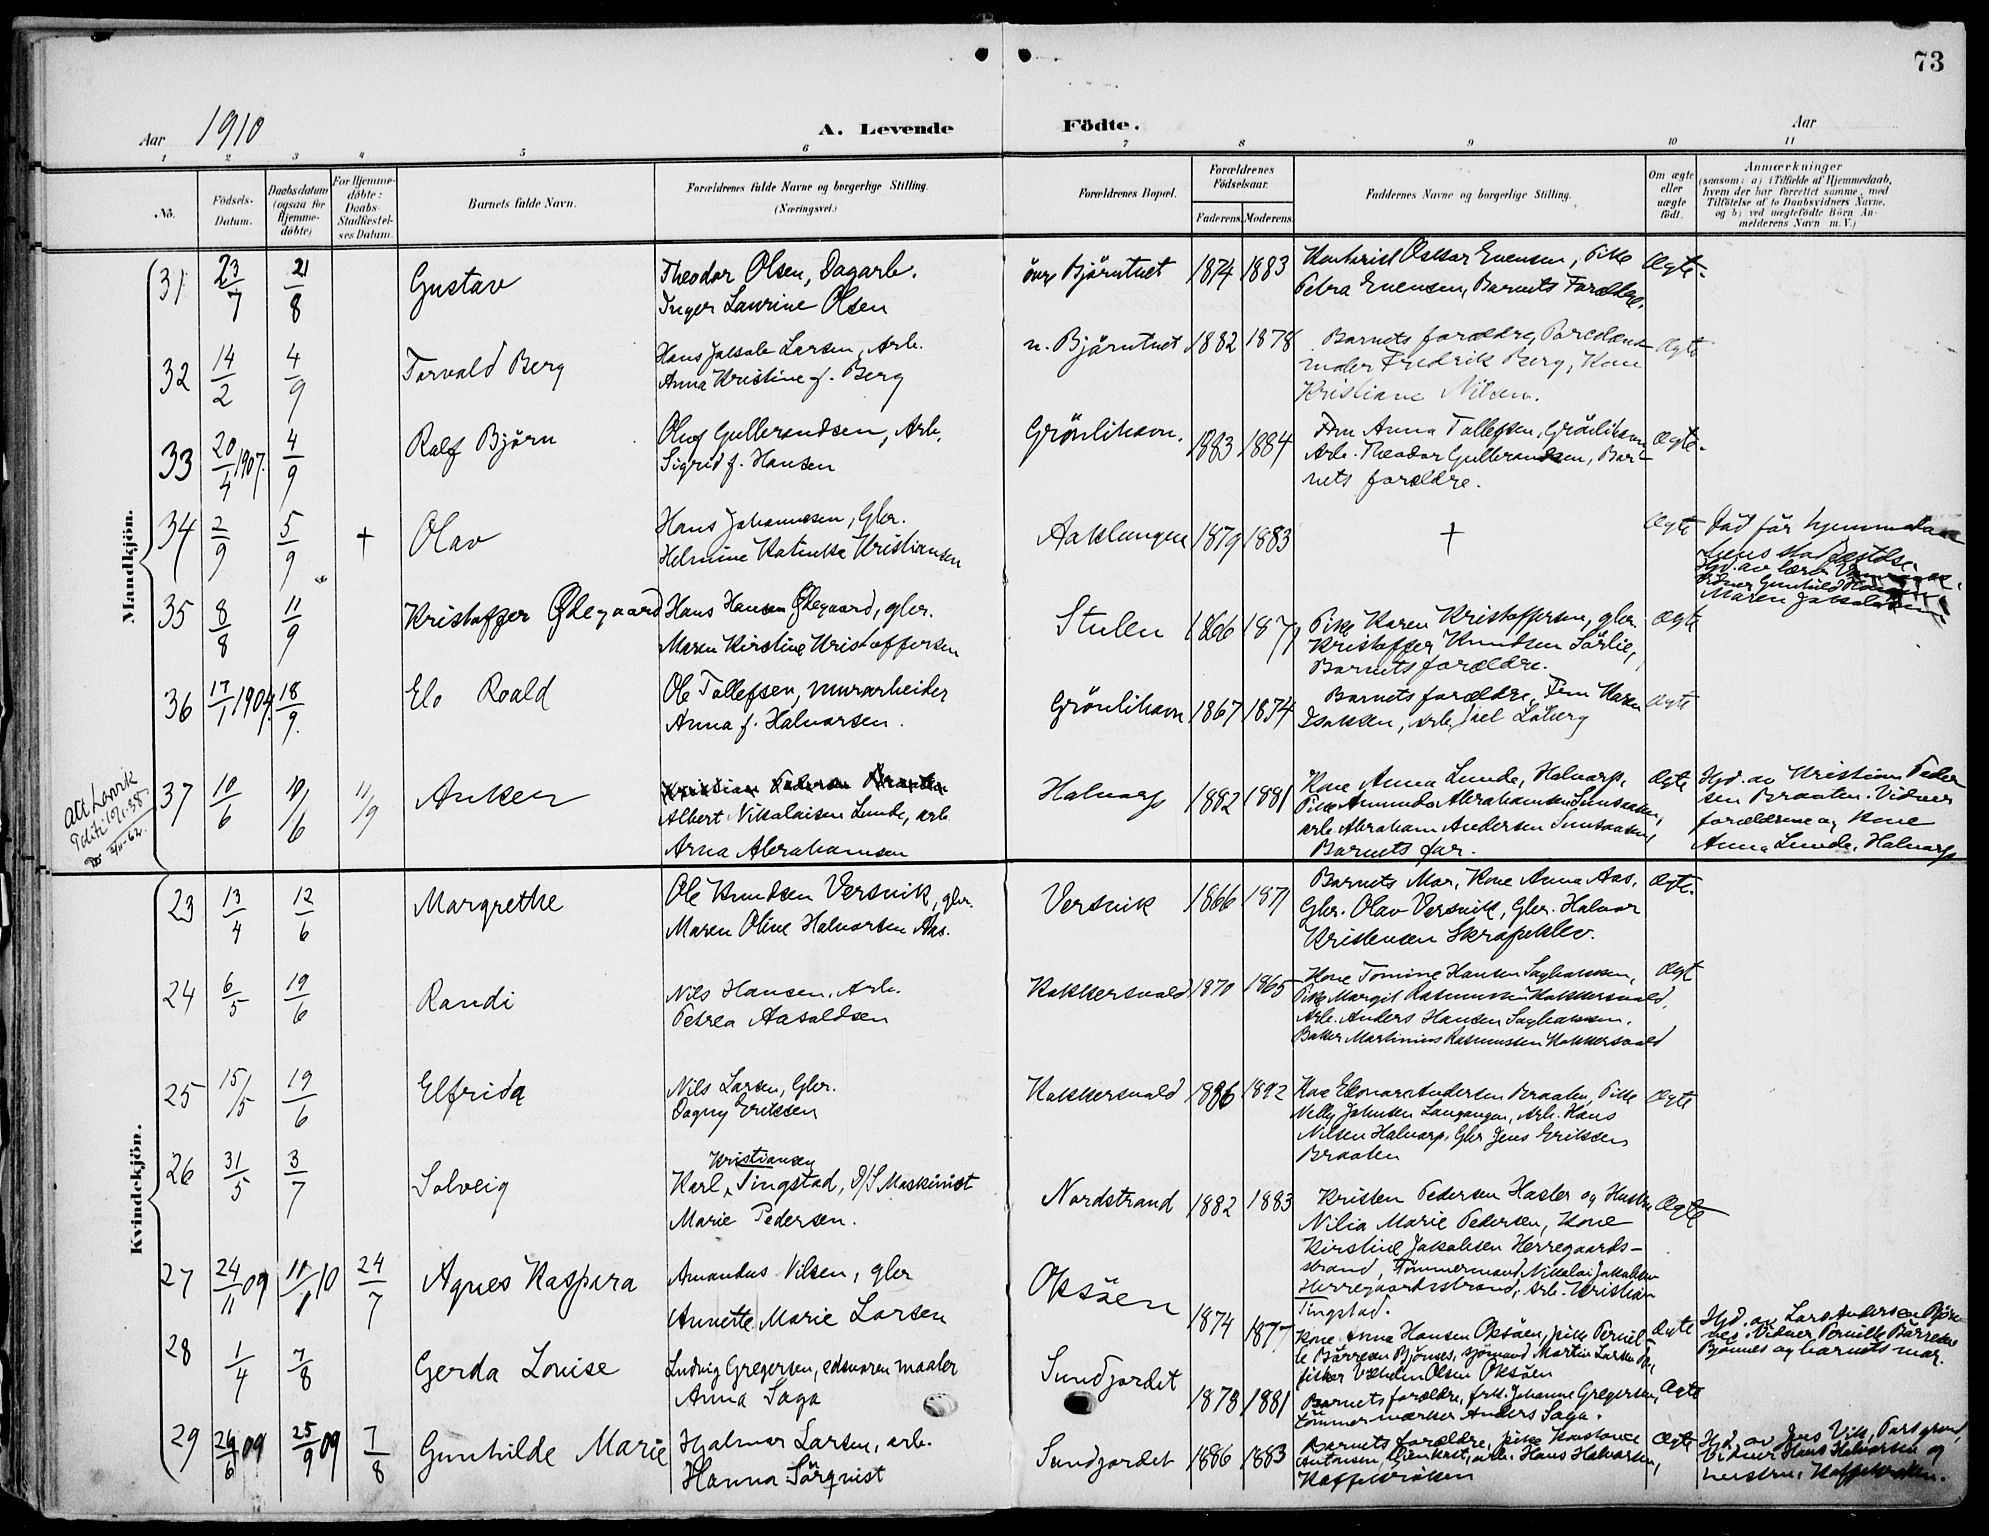 73
Aar 1910
A. Levende Födte.
Aar
1 2 3 4 5 6 7 8 9 10 11
No.
Födsels-Datum.
Daabsdatum (ogsaa for Hjemme-döbte)
For Hjemme-döbte: Daabs-Stadfæstel-ses Datum.
Barnets fulde Navn.
Forældrenes fulde Navne og borgerlige Stilling. (Næringsvei.)
Forældrenes Bopæl.
Forældrenes Födselsaar.
Faderens. Moderens.
Faddernes Navne og borgerlige Stilling.
Om ægte eller uægte födt.
Anmærkninger
(saasom: a) i Tilfælde af Hjemmedaab,
hvem der har forrettet samme, med
Tilföielse af to Daabsvidners Navne,
og b) ved uegtefödte Börn An-
melderens Navn m. V.)
Mandkjön.
31 23/7 21/8 Gustav
Theodor Olsen, Dagarb.
Inger Laurine Olsen
övre Björntvet 1874 1883
Oskar Evensen, Pike
Petra Evensen, Barnets Forældre.
Ægte.
32 14/2 4/9 Torvald Berg
Hans Jakob Larsen, Arb.
Anna Kristine f. Berg
n. Björntvet 1882 1878
Barnets forældre,
Fredrik Berg, Kone
Kristiane Nilsen.
Ægte
33 20/4 1907. 4/9 Ralf Björn
Oluf Gulbrandsen, Arb.
Sigrid f. Hansen
Grönlihavn. 1883 1884
Fru Anna Tollefsen, Grönlihavn
Arb. Theodor Gulbrandsen, Bar-
nets forældre.
Ægte.
34 2/9 5/9 + Olav
Hans Johannesen, Gbr.
Helmine Katinka Kristiansen
Aaklungen 1879 1883
+
Ægte
Död för hjemmedaa
bens stadfæstelse.
Hjd. av lærer
Vidner Gunhild
Maren Jakobsen
35 8/8 11/9 Kristoffer Ødegaard
Hans Hansen Ødegaard, gbr.
Maren Kirstine Kristoffersen
Stulen 1866 1871
Pike Karen Kristoffersen, gbr.
Kristoffer Knudsen Sörlie,
Barnets forældre.
Ægte
36 17/1 1909. 18/9. Elo Roald
Ole Tollefsen, murarbeider
Anna f. Halvorsen.
Grönlihavn 1867 1874
Barnets forældre, Fru Maren
Isaksen, arb. Joel Löberg
Ægte
37 10/6 10/6 11/9 Anken
Kristian Pedersen Braaten
Albert Nikolaisen Lunde, arb
Anna Abrahamsen
Halvarp 1882 1881
Kone Anna Lunde, Halvarp,
Pike Amunda Abrahamsen Sunsaasen,
arb. Abraham Andersen Sunsaasen,
Barnets far.
Ægte
Hjd. av Kristian Peder
sen Braaten. Vidner
forældrene og Kone
Anna Lunde, Halvarp
Kvindekjön.
23 13/4 12/6 Margrethe
Ole Knudsen Versvik, gbr.
Maren Oline Halvorsen Aas.
Versvik 1866 1871
Barnets Mor, Kone Anna Aas,
Gbr. Olav Versvik, Gbr. Halvor
Kristensen Skrapeklev.
Ægte.
24 6/5 19/6 Randi
Nils Hansen, Arb.
Petrea Aasoldsen
Kokkersvold 1870 1865
Kone Tomine Hansen Saghaven,
Pike Margit Rasmussen Kokkersvold.
Arb. Anders Hansen Saghaven.
Baker Martinius Rasmussen Kokkersvold
Ægt
25 15/5 19/6 Elfrida
Nils Larsen, Gbr.
Dagny Eriksen
Kokkersvold 1886 1892
Kone Andersen Braaten, Pike
Nelly Johnsen Langangen, Arb. Hans
Nilsen Halvarp, Gbr Jens Eriksen
Braaten
Ægte
26 31/5 3/7 Solveig
Kristiansen
Karl Tingstad, D/S Maskinist
Marie Pedersen.
Nordstrand 1882 1883
Kristen Pedersen Hasler og Hustru
Nilia Marie Pedersen, Kone
Kirstine Jakobsen Herregaards-
strand, Tömmermand Nikolai Jakobsen
Herregaardsstrand, Arb. Kristian
Tingstad.
Ægte
27 24/11 09 11/1 10 24/7 Agnes Kaspara
Amandus Nilsen, gbr
Annette Marie Larsen
Oksöen 1874 1877
Kone Anna Hansen Oksöen, pike Pernil-
le Börresen Björnes, sjömand Martin Larsen
fisker Vilhelm Olsen Oksöen
Ægte
Hjd. av Lars Andersen Björ-
nes. Vidner Pernille Börresen
Björnnes og barnets mor.
28 1/4 7/8 Gerda Louise
Ludvig Gregersen, edsvoren maaler
Anna Saga
Sundjordet 1878 1881
Barnets forældre, frk. Johanne Gregersen,
tömmermærker Anders Saga.
Ægte
29 26/6 09 25/9 09 7/8 Gunhilde Marie
Hjalmar Larsen, arb.
Hanna Sörqvist
Sundjordet 1886 1883
Barnets forældre, pike Konstance
Antonsen, arb. Hans Halvorsen,
Ægte
Hjd. av Jens Vik, Porsgrund,
Vidner Hans Halvorsen og